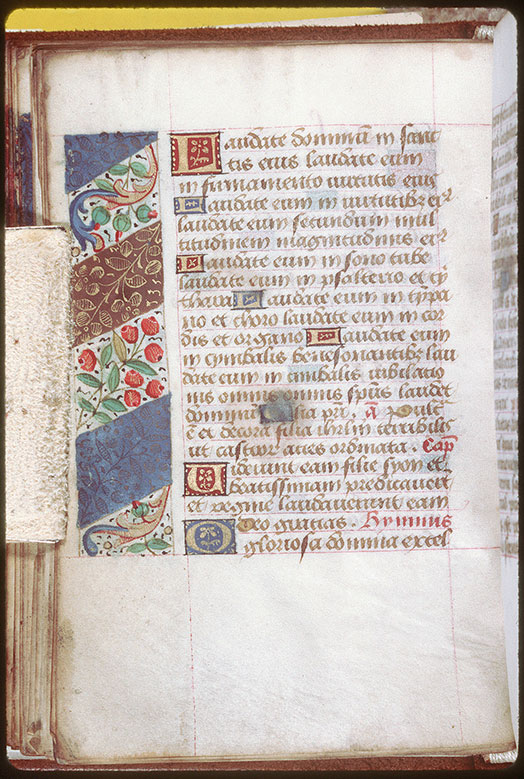 Laudate dominū in sanc
tis eius laudate eum
in firmamento virtutis eius
Laudate eum in virtutibꝰ eiꝰ
laudate eum secundum mul
titudinem magnitudinis eiꝰ
Laudate eum in sono tube
laudate eum in psalterio et cy
thara Laudate eum in tȳpa
no et choro laudate eum in cor
dis et organo Laudate eum
in cymbalis benesonantibus lau
date eum in cimbalis iubilatio
nis omnis omnis spūs laudet
dominū Gloria pri. ā Pulc
ē et decora filia ihrlm terribilis
ut castrorꝰ acies ordinata. Capl̄
Viderunt eam filie syon et
beatissimam predicaverūt
et regine laudaverunt eam
Deo gratias. Hymnus
O gloriosa domina excel